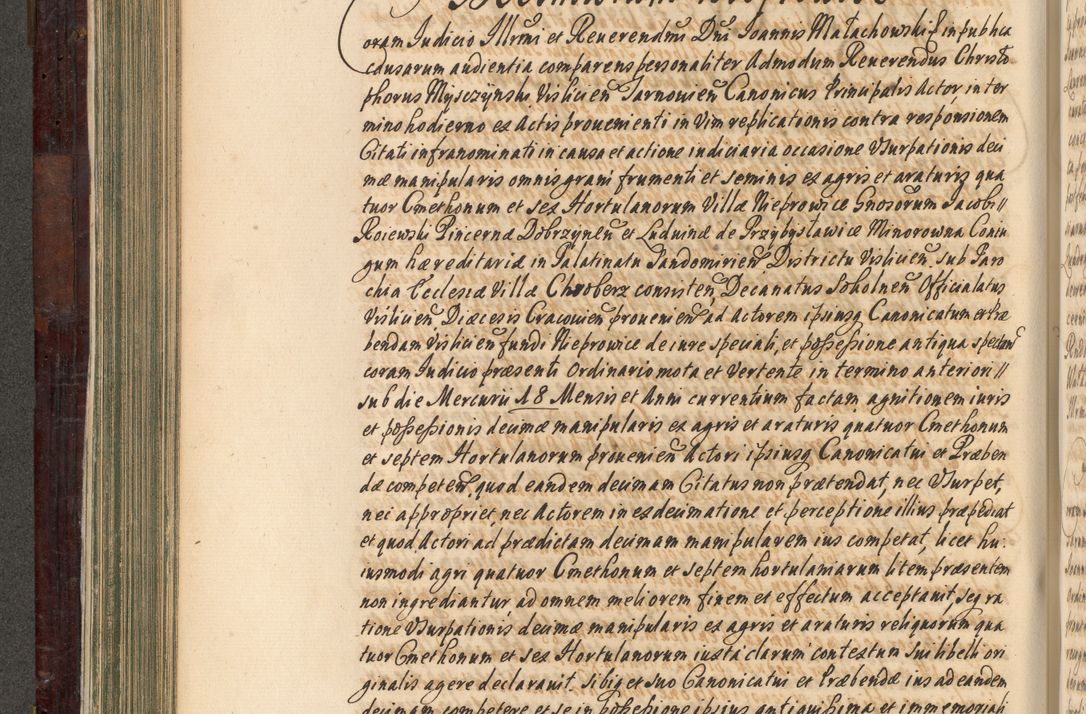 oram Judicio Illrmi et Reverendmi Dni Joannis Małachowski E in publica
causarum audientia comparens personaliter Admodum Reverendus Christo
phorus Mysczynski Vislicien Tarnovien Canonicus Principalis Actor, in ter
mino hodierno ex Actis provenienti in Vim replicationis contra responsionem
Citati infranominati in causa et actione iudiciaria occasione Vsurpationis deci
mæ manipularis omnis grani frumenti et seminis ex agris et araturis qua
tuor Cmethonum et sex Hortulanorum Villæ Nieprowice Gnosorum Jacobi//
Roiewski Pincernæ Dobrzynen et Ludvinæ de Przybysławice Minorowna Coniu
gum hæreditariæ in Palatinatu Sandomirien Districtu Vislicien. sub Paro
chia Ecclesiæ Villæ Chroberz consisten, Decanatus Sokolnen Officialatus
Vislicien, Diæcesis Cracovien provenien ad Actorem ipsiusq Canonicatum et Præ
bendam Vislicien fundi Nieprowice de iure speciali, et possessione antiqua spectan
coram Judicio præsenti Ordinario mota et Vertente in termino anteriori//
sub die Mercurii 18 Mensis et Anni currentium factam agnitionem iuris
et possessionis decimæ manipularis ex agris et araturis quatuor Cmethonum
et septem Hortulanorum provenien Actori ipsiusq Canonicatui et Præben
dæ competen, quod eandem decimam Citatus non prætendat, nec Vsurpet,
nec appropriet, nec Actorem in exdecimatione et perceptione illius præpediat
et quod Actori ad prædictam decimam manipularem ius competat, licet hu
iusmodi agri quatuor Cmethonum et septem hortulaniarum litem præsentem
non ingrediantur ad omnem meliorem finem et effectum acceptavit, seq ra
tione Vsurpationis decimæ manipularis ex agris et araturis reliquorum qua
tuor Cmethonum et sex Hortulanorum iuxta clarum contextum sui libelli ori
ginalis agere declaravit. sibiq et suo Canonicatui et Præbendæ ius ad eandem
decimam competere et se in possessione ipsius antiquissima et immemoriali